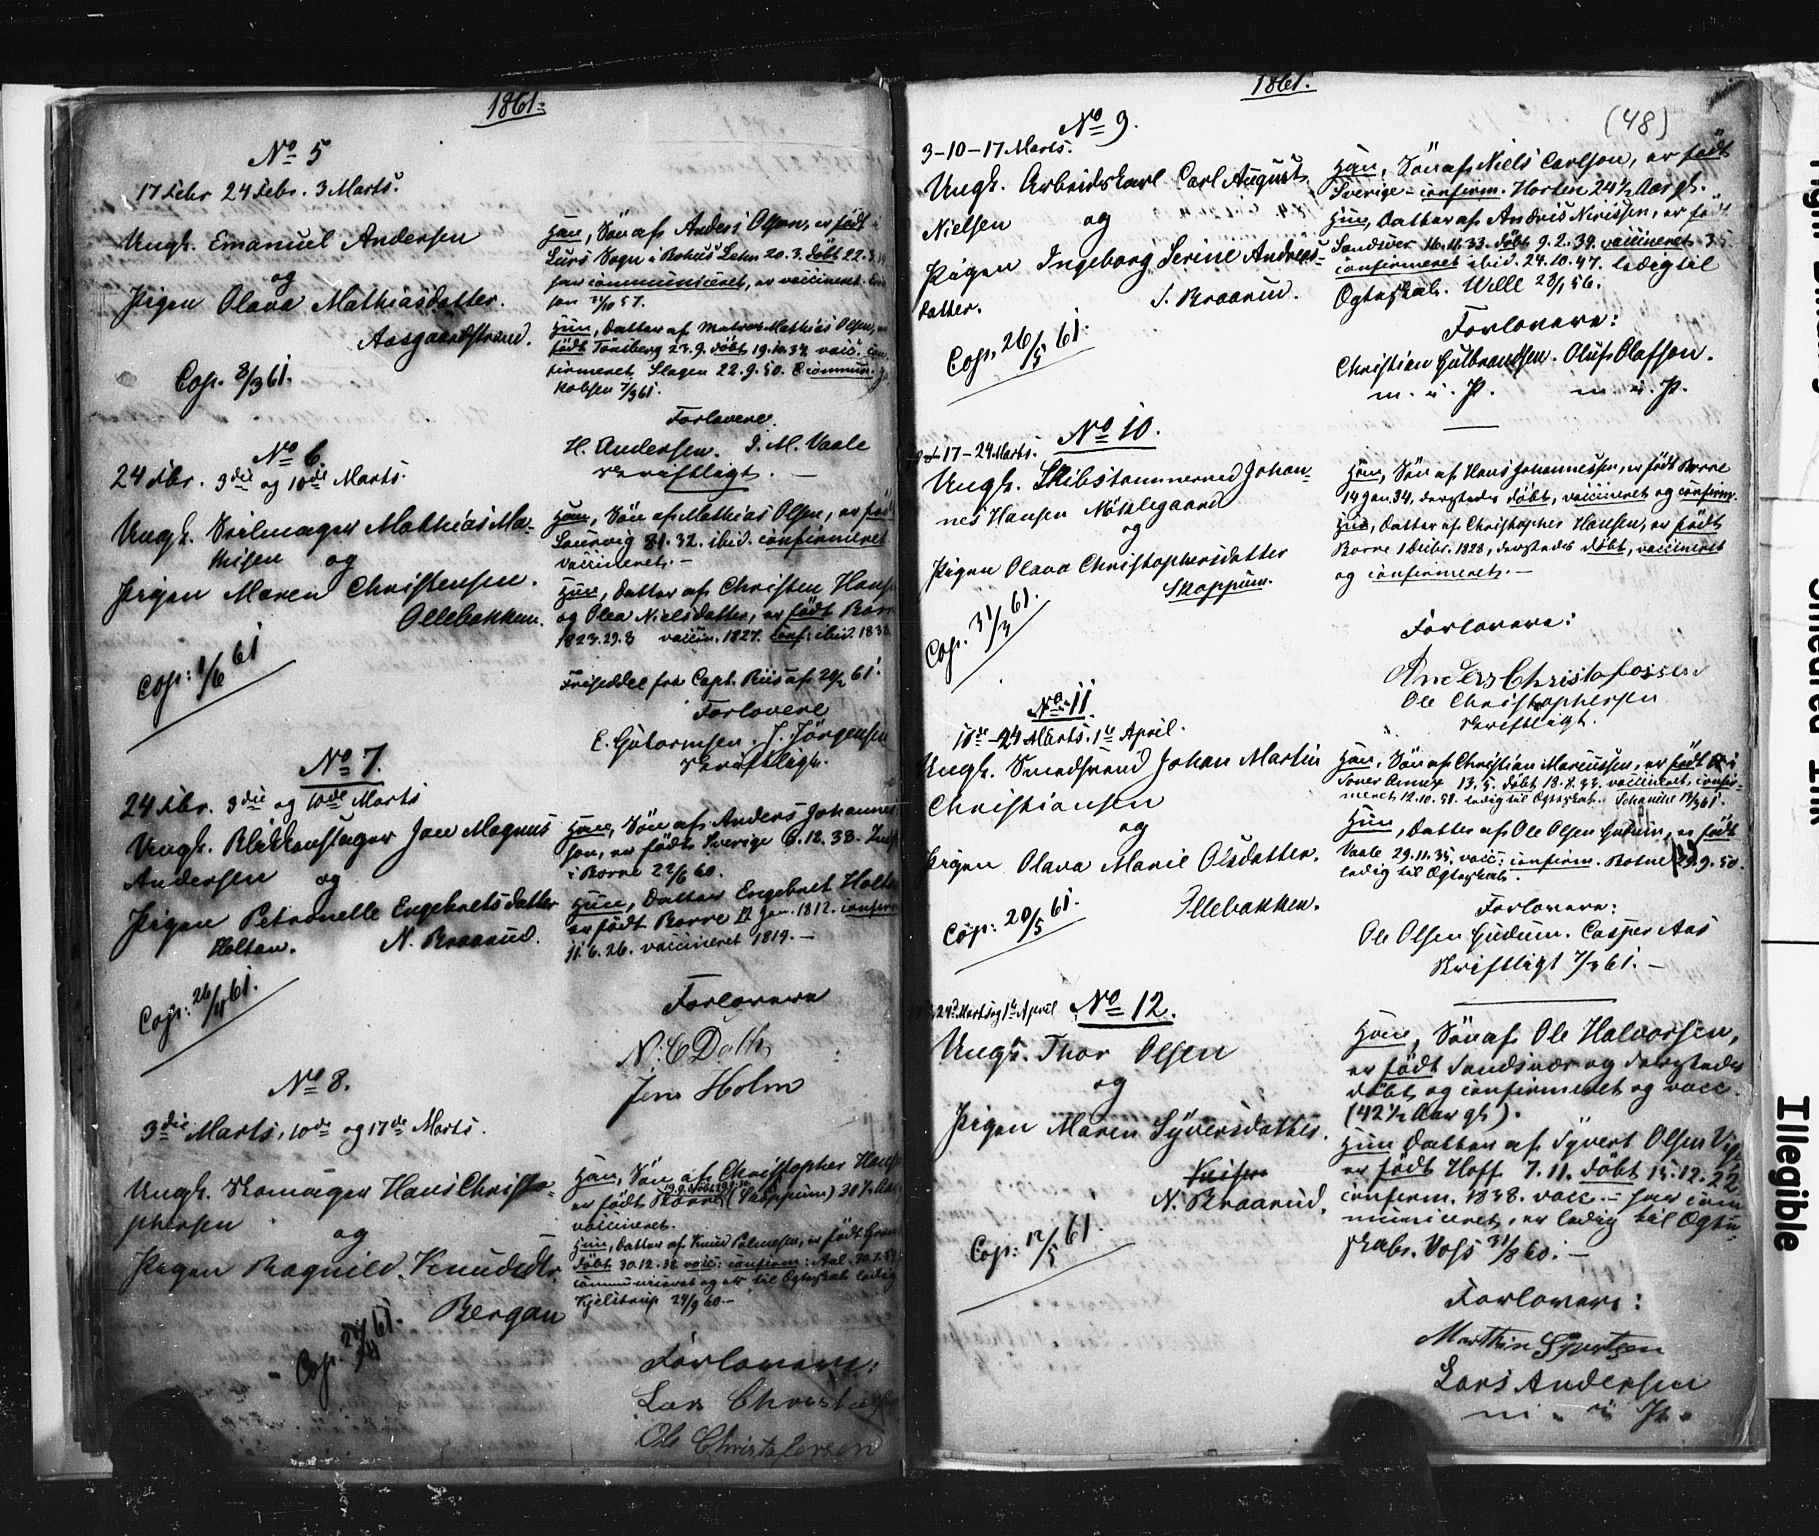 1861.
No 5
17 Febr 24 Febr. 3 Marts.
Ungk. Emanuel Andersen
og
Pigen Olava Mathiasdatter.
Aasgaardstrand.
Cop. 8/3 61.
Han, Søn af Anders Olson, er født i
Lurs Sogn i Bohus Lehn 20.3. døbt 22.3.
har communiceret, er vaccineret.
Hun, Datter af Matros Mathias Olsen, er
født Tønsberg 23.9. døbt 19.10.34 vacc. con-
firmeret Slagen 22.9.50.
Forlovere.
H. Andersen. I. M. Vaale
skriftligt. —
No 6
24 Fbr. 3die og 10de Marts.
Ungk. Seilmager Mathias Ma-
thisen og
Pigen Maren Christensen.
Ollebakken.
Cop: 1/6 61
Han, Søn af Mathias Olsen, er født
Laurvig ibid. confirmeret
vaccineret. —
Hun, Datter af Christen Hans
og Olea Nielsdatter, er født Borre
1823.29.8 vaccin. 1827. conf: ibid. 1838.
Friseddel fra Capt. Riis af 20/2 61.
Forlovere
E. Gutormsen. J. Jörgensen
skriftligt.
No 7.
24 Fbr. 3die og 10de Marts
Ungk. Blikkenslager Jon Magnus
Andersen og
Pigen Petronelle Engebretsdatter
Holtan. N. Braarud.
Cop: 26/4 61.
Han, Søn af Anders Johannes
son, er født Sverige 6.12.38. Indf
i Borre 22/6 60.
Hun, Datter Engebret Holtan
er født Borre 17 Jan. 1812. confirm
11.6.26. vaccineret 1819. —
Forlovere
N. C Dath
Jens Holm
No 8.
3die Marts, 10de og 17de Marts.
Ungk. Skomager Hans Christo-
phersen
og
Pigen Ragnild Knudsdtr
Bergan
Cop. 61.
Han, Søn af Christopher Hans
er født Borre (Skoppum) 30 ½ Aar
vaccineret.
Hun, Datter af Knud Palmesen, er født
døbt 30.12.32 vacc: confirm: Aal.
communiceret og er til Ægteskab ledig
Kjelstrup 24/9 60 —
Forlovere:
Lars Christ
Ole Christofersen
1861.
(48)
No 9.
3-10-17 Marts.
Ungk. Arbeidskarl Carl August
Nielsen og
Pigen Ingeborg Serine Andreas-
datter. S. Braarud.
Cop. 26/5 61.
Han, Søn af Niels Carlson, er født
Sverige - confirm. Horten 24½ Aar gl.
Hun, Datter af Andreis Nirissen, er født
Sandsver 16.11.33. døbt 9.2.34. vaccineret 35
confirmeret ibid. 24.10.47. ledig til
Ægteskab. Wille 23/1 56.
Forlovere:
Christian Gulbrandsen. Oluf Olafson.
m. i. P. m. i. P.
No 10.
17-24 Marts.
Ungk. Skibstømmermd Johan-
nes Hansen Nøklegaard
og
Pigen Olava Christophersdatter
Skoppum.
Cop. 31/3 61.
Han, Søn af Hans Johannessen, er født Borre
14 Jan. 34, dersteds døbt, vaccineret og confirm.
Hun, Datter af Christopher Hansen, er født
Borre 1 Decbr. 1828, dersteds døbt, vaccineret
og confirmeret. —
Forlovere:
Anders Christofossen
Ole Christophersen
skriftligt.
No 11
17de-24 Marts. 1te April.
Ungk. Smedsvend Johan Martin
Christiansen
og
Pigen Olava Marie Olsdatter.
Ollebakken.
Cop: 20/5 61.
Han, Søn af Christian Marcussen, er født
13.5. døbt 18.8.33. vaccineret, confir-
meret 12.10.51. ledig til Ægteskab.
Hun, Datter af Ole Olsen Gudum, er født
Vaale 29.11.35, vacc: confirm. Botne 29.9.50.
ledig til Ægteskab.
Forlovere:
Ole Olsen Gudum. Casper Aas
Skriftligt 7/3 61. —
No 12.
24de Marts og 1te April
Ungk. Thor Olsen
og
Pigen Maren Syversdatter.
N. Braarud.
Cop: 12/5 61.
Han, Søn af Ole Halvorsen,
er født Sandsvær og dersteds
døbt og confirmeret og vacc.
(42½ Aar gl).
Hun Datter af Syvert Olsen
er født Hoff 7.11. døbt 15.12.22
confirm. 1838. vacc. — har com
municeret, er ledig til Ægte-
skab. Voss 31/8 60. —
Forlovere:
Marthin Syvertsen
Lars Andersen
m. i. P.
Illegible